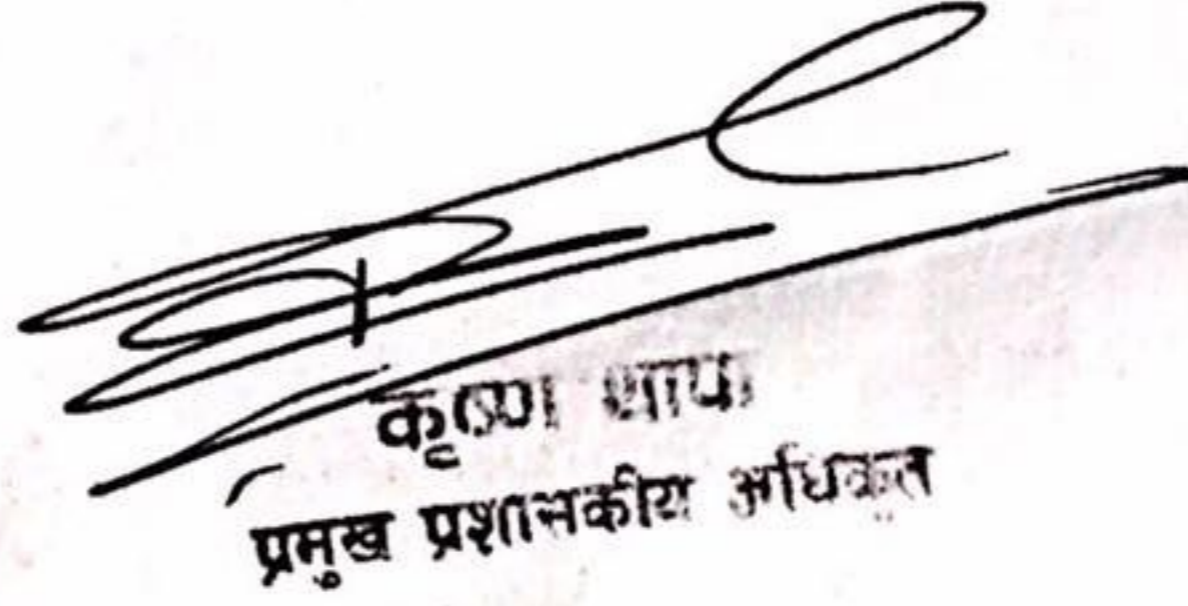 कृष्ण थापा
प्रमुख प्रशासकीय अधिकृत